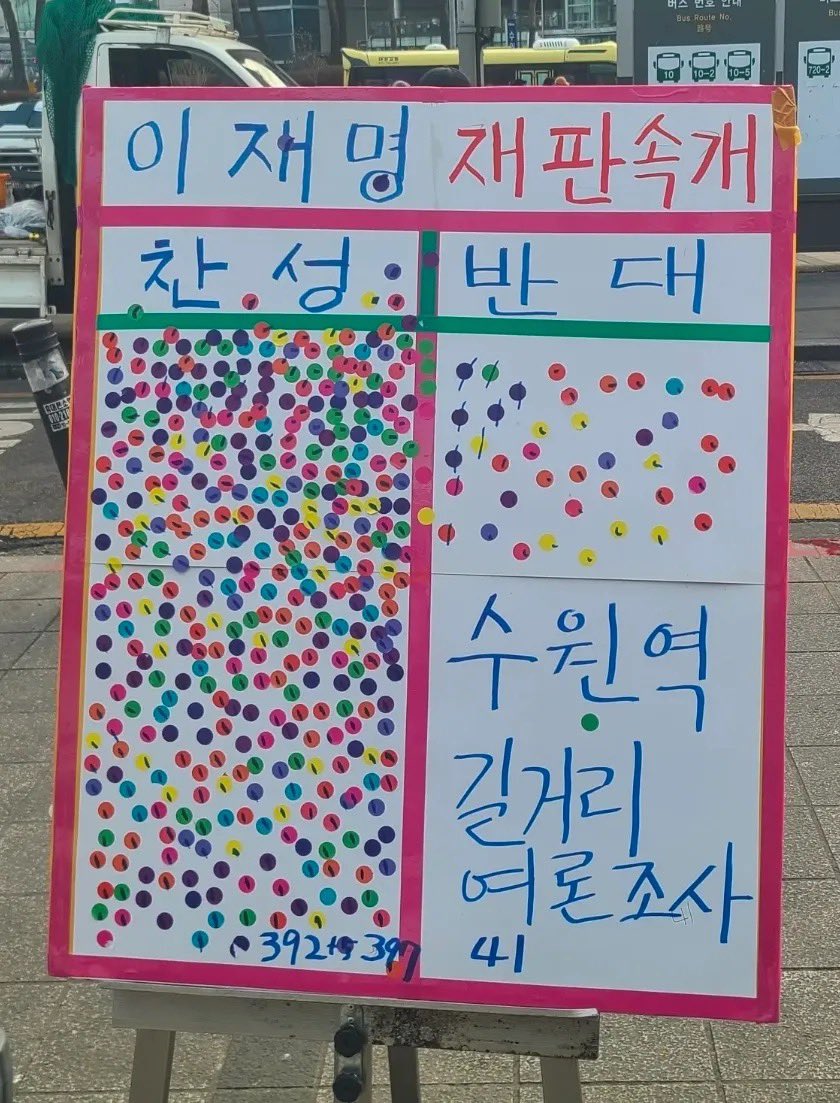 버스 번호 안내
Bus Route No.
10 10-2 10-5
720-2
이재명 재판속개
찬성 반대
수원역
길거리
여론조사
41
392+5 397 41